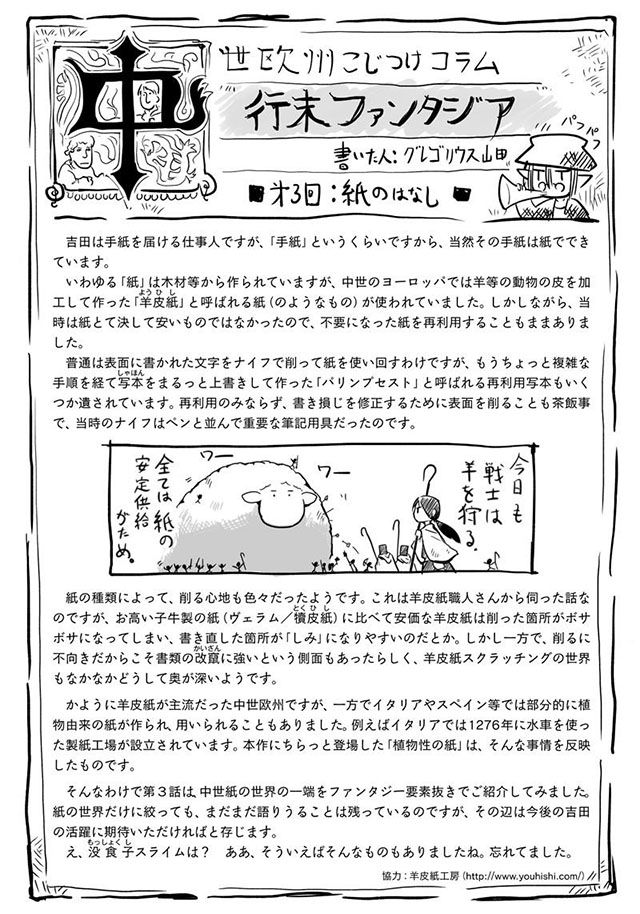 中世欧州こじつけコラム
行末ファンタジア
書いた人:グレゴリウス山田
パフ
パフ
■才3回:紙のはなし■
吉田は手紙を届ける仕事人ですが、「手紙」というくらいですから、当然その手紙は紙ででき
ています。
いわゆる「紙」は木材等から作られていますが、中世のヨーロッパでは羊等の動物の皮を加
工して作った「羊皮紙」と呼ばれる紙(のようなもの)が使われていました。しかしながら、当
時は紙とて決して安いものではなかったので、不要になった紙を再利用することもままありま
した。
普通は表面に書かれた文字をナイフで削って紙を使い回すわけですが、もうちょっと複雑な
手順を経て写本をまるっと上書きして作った「パリンプセスト」と呼ばれる再利用写本もいく
つか遺されています。再利用のみならず、書き損じを修正するために表面を削ることも茶飯事
で、当時のナイフはペンと並んで重要な筆記用具だったのです。
今日も
戦士は
羊を狩る。
ワー
ワー
全ては紙の
安定供給
がため。
紙の種類によって、削る心地も色々だったようです。これは羊皮紙職人さんから伺った話な
のですが、お高い子牛製の紙(ヴェラム/犢皮紙)に比べて安価な羊皮紙は削った箇所がボサ
ボサになってしまい、書き直した箇所が「しみ」になりやすいのだとか。しかし一方で、削るに
不向きだからこそ書類の改竄に強いという側面もあったらしく、羊皮紙スクラッチングの世界
もなかなかどうして奥が深いようです。
かように羊皮紙が主流だった中世欧州ですが、一方でイタリアやスペイン等では部分的に植
物由来の紙が作られ、用いられることもありました。例えばイタリアでは1276年に水車を使っ
た製紙工場が設立されています。本作にちらっと登場した「植物性の紙」は、そんな事情を反映
したものです。
そんなわけで第3話は、中世紙の世界の一端をファンタジー要素抜きでご紹介してみました。
紙の世界だけに絞っても、まだまだ語りうることは残っているのですが、その辺は今後の吉田
の活躍に期待いただければと存じます。
え、没食子スライムは? ああ、そういえばそんなものもありましたね。忘れてました。
協力:羊皮紙工房(http://www.youhishi.com/)